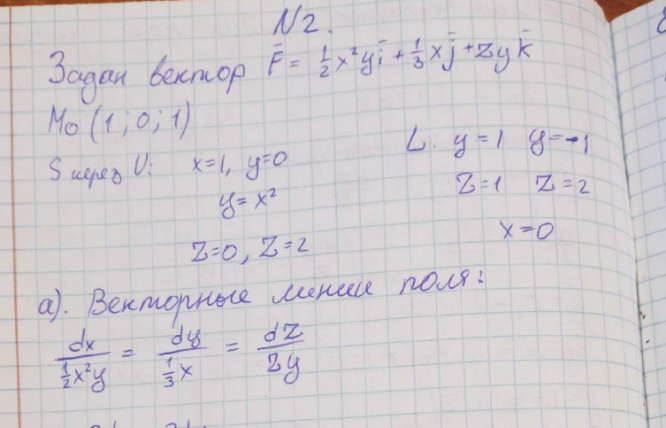 N2.
Задан вектор F̄ = 1/2 x²y ī + 1/3 x j̄ + zy k̄
M₀ (1; 0; 1)
S через V: x=1, y=0
y = x²
z=0, z=2
L. y=1 y=-1
z=1 z=2
x=0
а). Векторные линии поля:
dx/(1/2 x²y) = dy/(1/3 x) = dz/(zy)